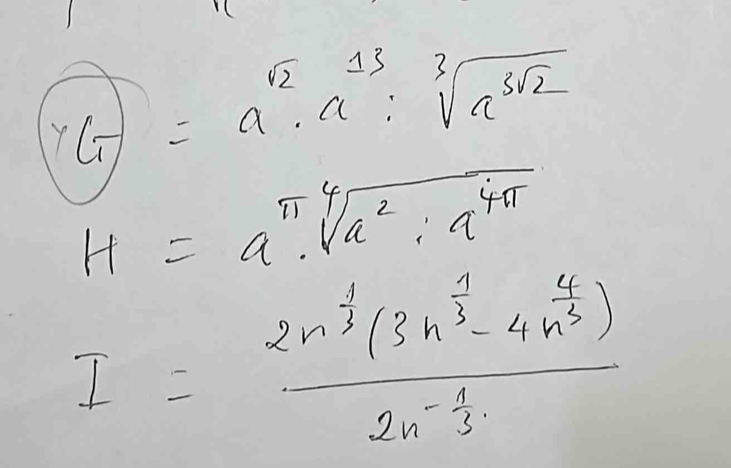 G = a^{√2} . a^{13} : ∛(a^{3√2})
H = a^{π} . ∜(a^{2} : a^{4π})
I = \frac{2n^{\frac{1}{3}}(3n^{\frac{1}{3}} - 4n^{\frac{4}{3}})}{2n^{-\frac{1}{3}}}.